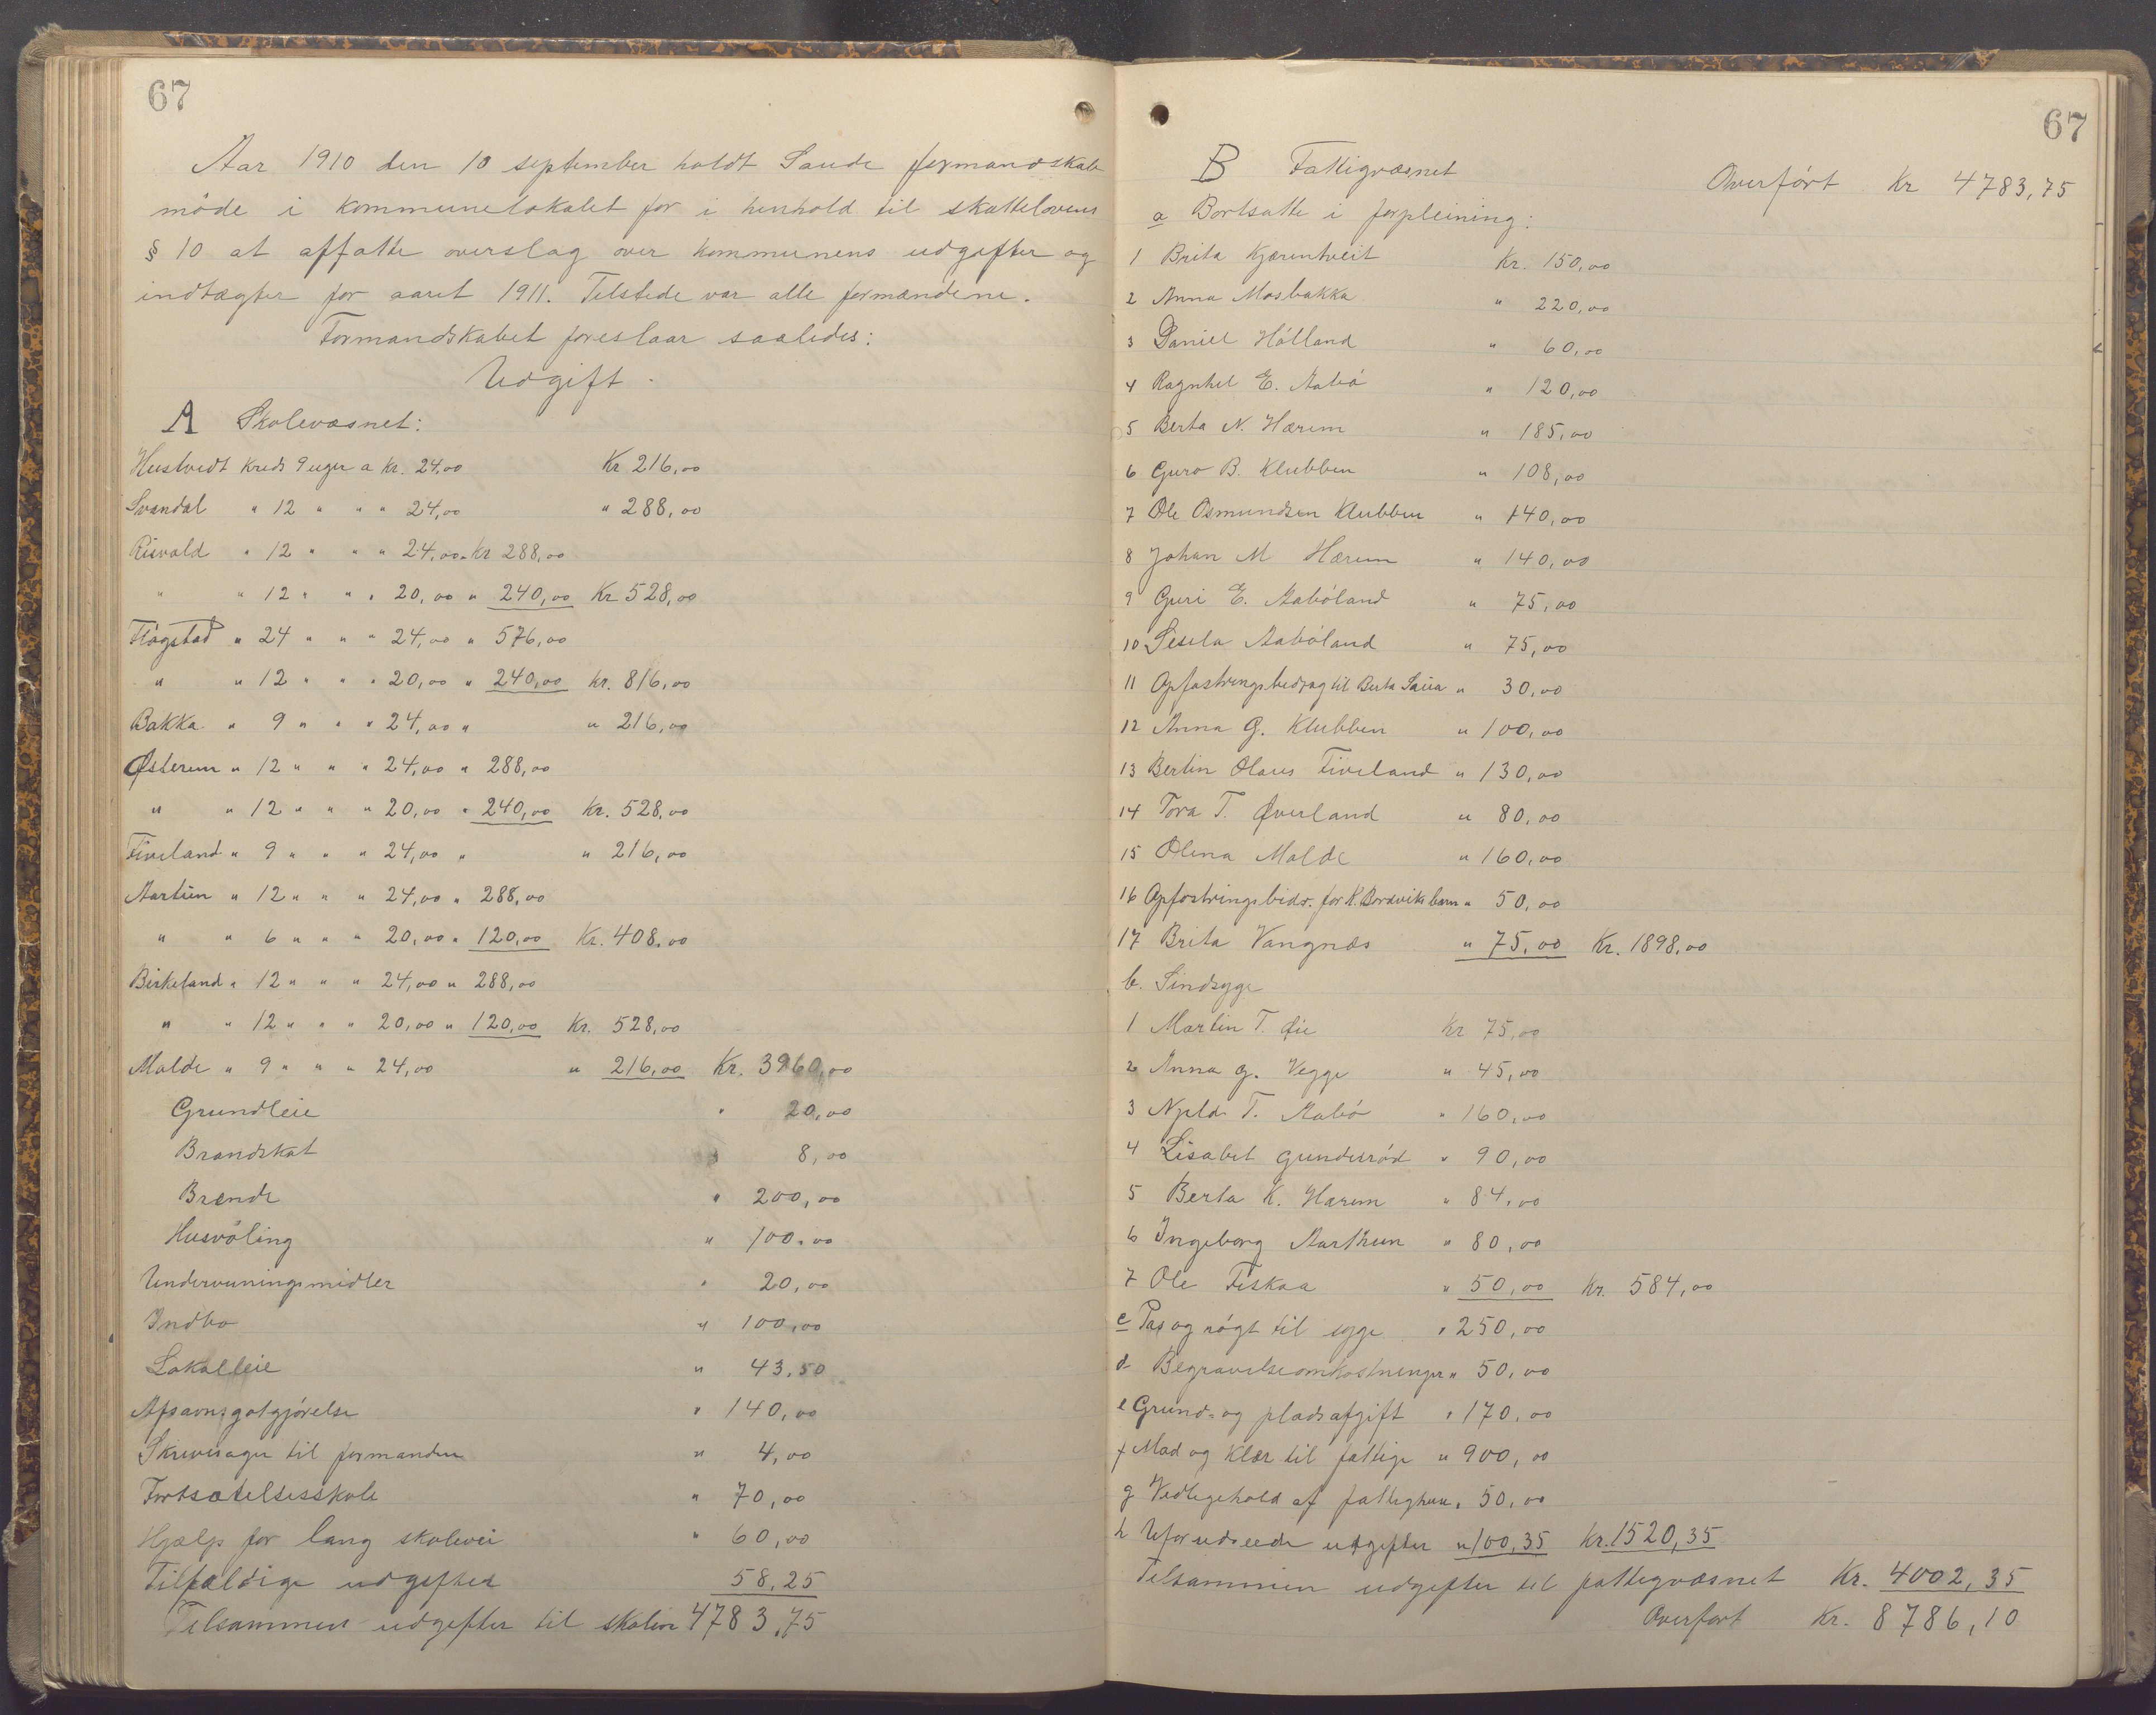 67
Aar 1910 den 10 september holdt Saude formandskab
möde i kommunelokalet for i henhold til skattelovens
§ 10 at affatte overslag over kommunens udgifter og
indtægter for aaret 1911. Tilstede var alle formændene.
Formandskabet foreslaar saaledes:
Udgift.
A Skolevæsnet:
Hustvedt Kreds 9 uger a Kr. 24.00 Kr 216,00
Svandal " 12 " " " 24,00 " 288,00
Risvold " 12 " " " 24,00 " Kr 288,00
" " 12 " " " 20,00 " 240,00 Kr 528,00
Flögstad " 24 " " " 24,00 " 576,00
" " 12 " " " 20,00 " 240,00 Kr. 816,00
Bakka " 9 " " " 24,00 " " 216,00
Østerem " 12 " " " 24,00 " 288,00
" " 12 " " " 20,00 " 240,00 Kr. 528,00
Fiveland " 9 " " " 24,00 " " 216,00
Aartun " 12 " " " 24,00 " 288,00
" " 6 " " " 20,00 " 120,00 Kr. 408,00
Birkeland " 12 " " " 24,00 " 288,00
" " 12 " " " 20,00 " 120,00 Kr. 528,00
Molde " 9 " " " 24,00 " 216,00 Kr. 3960,00
Grundleie " 20,00
Brandskat " 8,00
Brænde " 200,00
Husvöling " 100,00
Undervisningsmidler " 20,00
Indbo " 100,00
Lokalleie " 43,50
Afsavnsgotgjörelse " 140,00
Skrivesager til formanden " 4,00
Fortsætelsesskole " 70,00
Hjælp for lang skolevei " 60,00
Tilfældige udgifter 58,25
Tilsammen udgifter til skolen 4783,75
67
B Fattigvæsnet Overfört Kr 4783,75
a Bortsatte i forpleining:
1 Brita Kjærentveit Kr. 150,00
2 Anna Mosbakka " 220,00
3 Daniel Hölland " 60,00
4 Ragnhil E. Aabö " 120,00
5 Berta N. Hærem " 185,00
6 Guro B. Klubben " 108,00
7 Ole Osmundsen Klubben " 140,00
8 Johan M Hærem " 140,00
9 Guri E. Aaböland " 75,00
10 Sesela Aaböland " 75,00
11 Opfostringsbidrag til Berta Saua " 30,00
12 Anna G. Klubben " 100,00
13 Bertin Olaus Fiveland " 130,00
14 Tora T. Øverland " 80,00
15 Olena Molde " 160,00
16 Opfostringsbidr. for K. Bordviks barn " 50,00
17 Brita Vangnæs " 75,00 Kr. 1898,00
b. Sindsyge
1 Martin T. Øie Kr 75,00
2 Anna G. Vegge " 45,00
3 T. Aabö " 160,00
4 Lisabet Gunderöd " 90,00
5 Berta K. Hærem " 84,00
6 Ingeborg Aarthun " 80,00
7 Ole Fiskaa " 50,00 Kr. 584,00
c Pas og rögt til syge " 250,00
d Begravelseomkostninger " 50,00
e Grund- og pladsafgift " 170,00
f Mad og Klær til fattige " 900,00
g Vedligehold af fattighus " 50,00
h Uforudseede udgifter " 100,35 Kr. 1520,35
Tilsammen udgifter til fattigvæsnet Kr. 4002,35
Overfört Kr. 8786,10